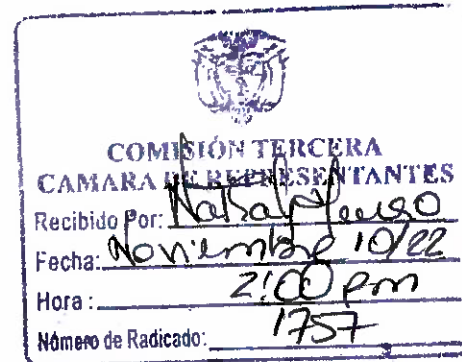 COMISIÓN TERCERA
CAMARA DE REPRESENTANTES
Recibido Por:
Fecha: Noviembre 10/22
Hora: 2:00 pm
Número de Radicado: 1757